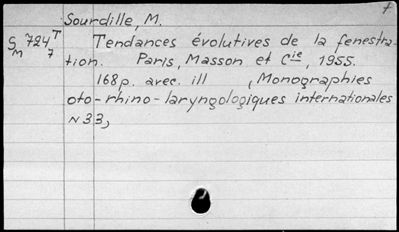 Sourdille, M.
S 724 T
m 7
Tendances évolutives de la fenestra-
tion. Paris, Masson et Cie, 1955.
168p. avec. ill , (Monographies
oto-rhino-laryngologiques internationales
N 33)